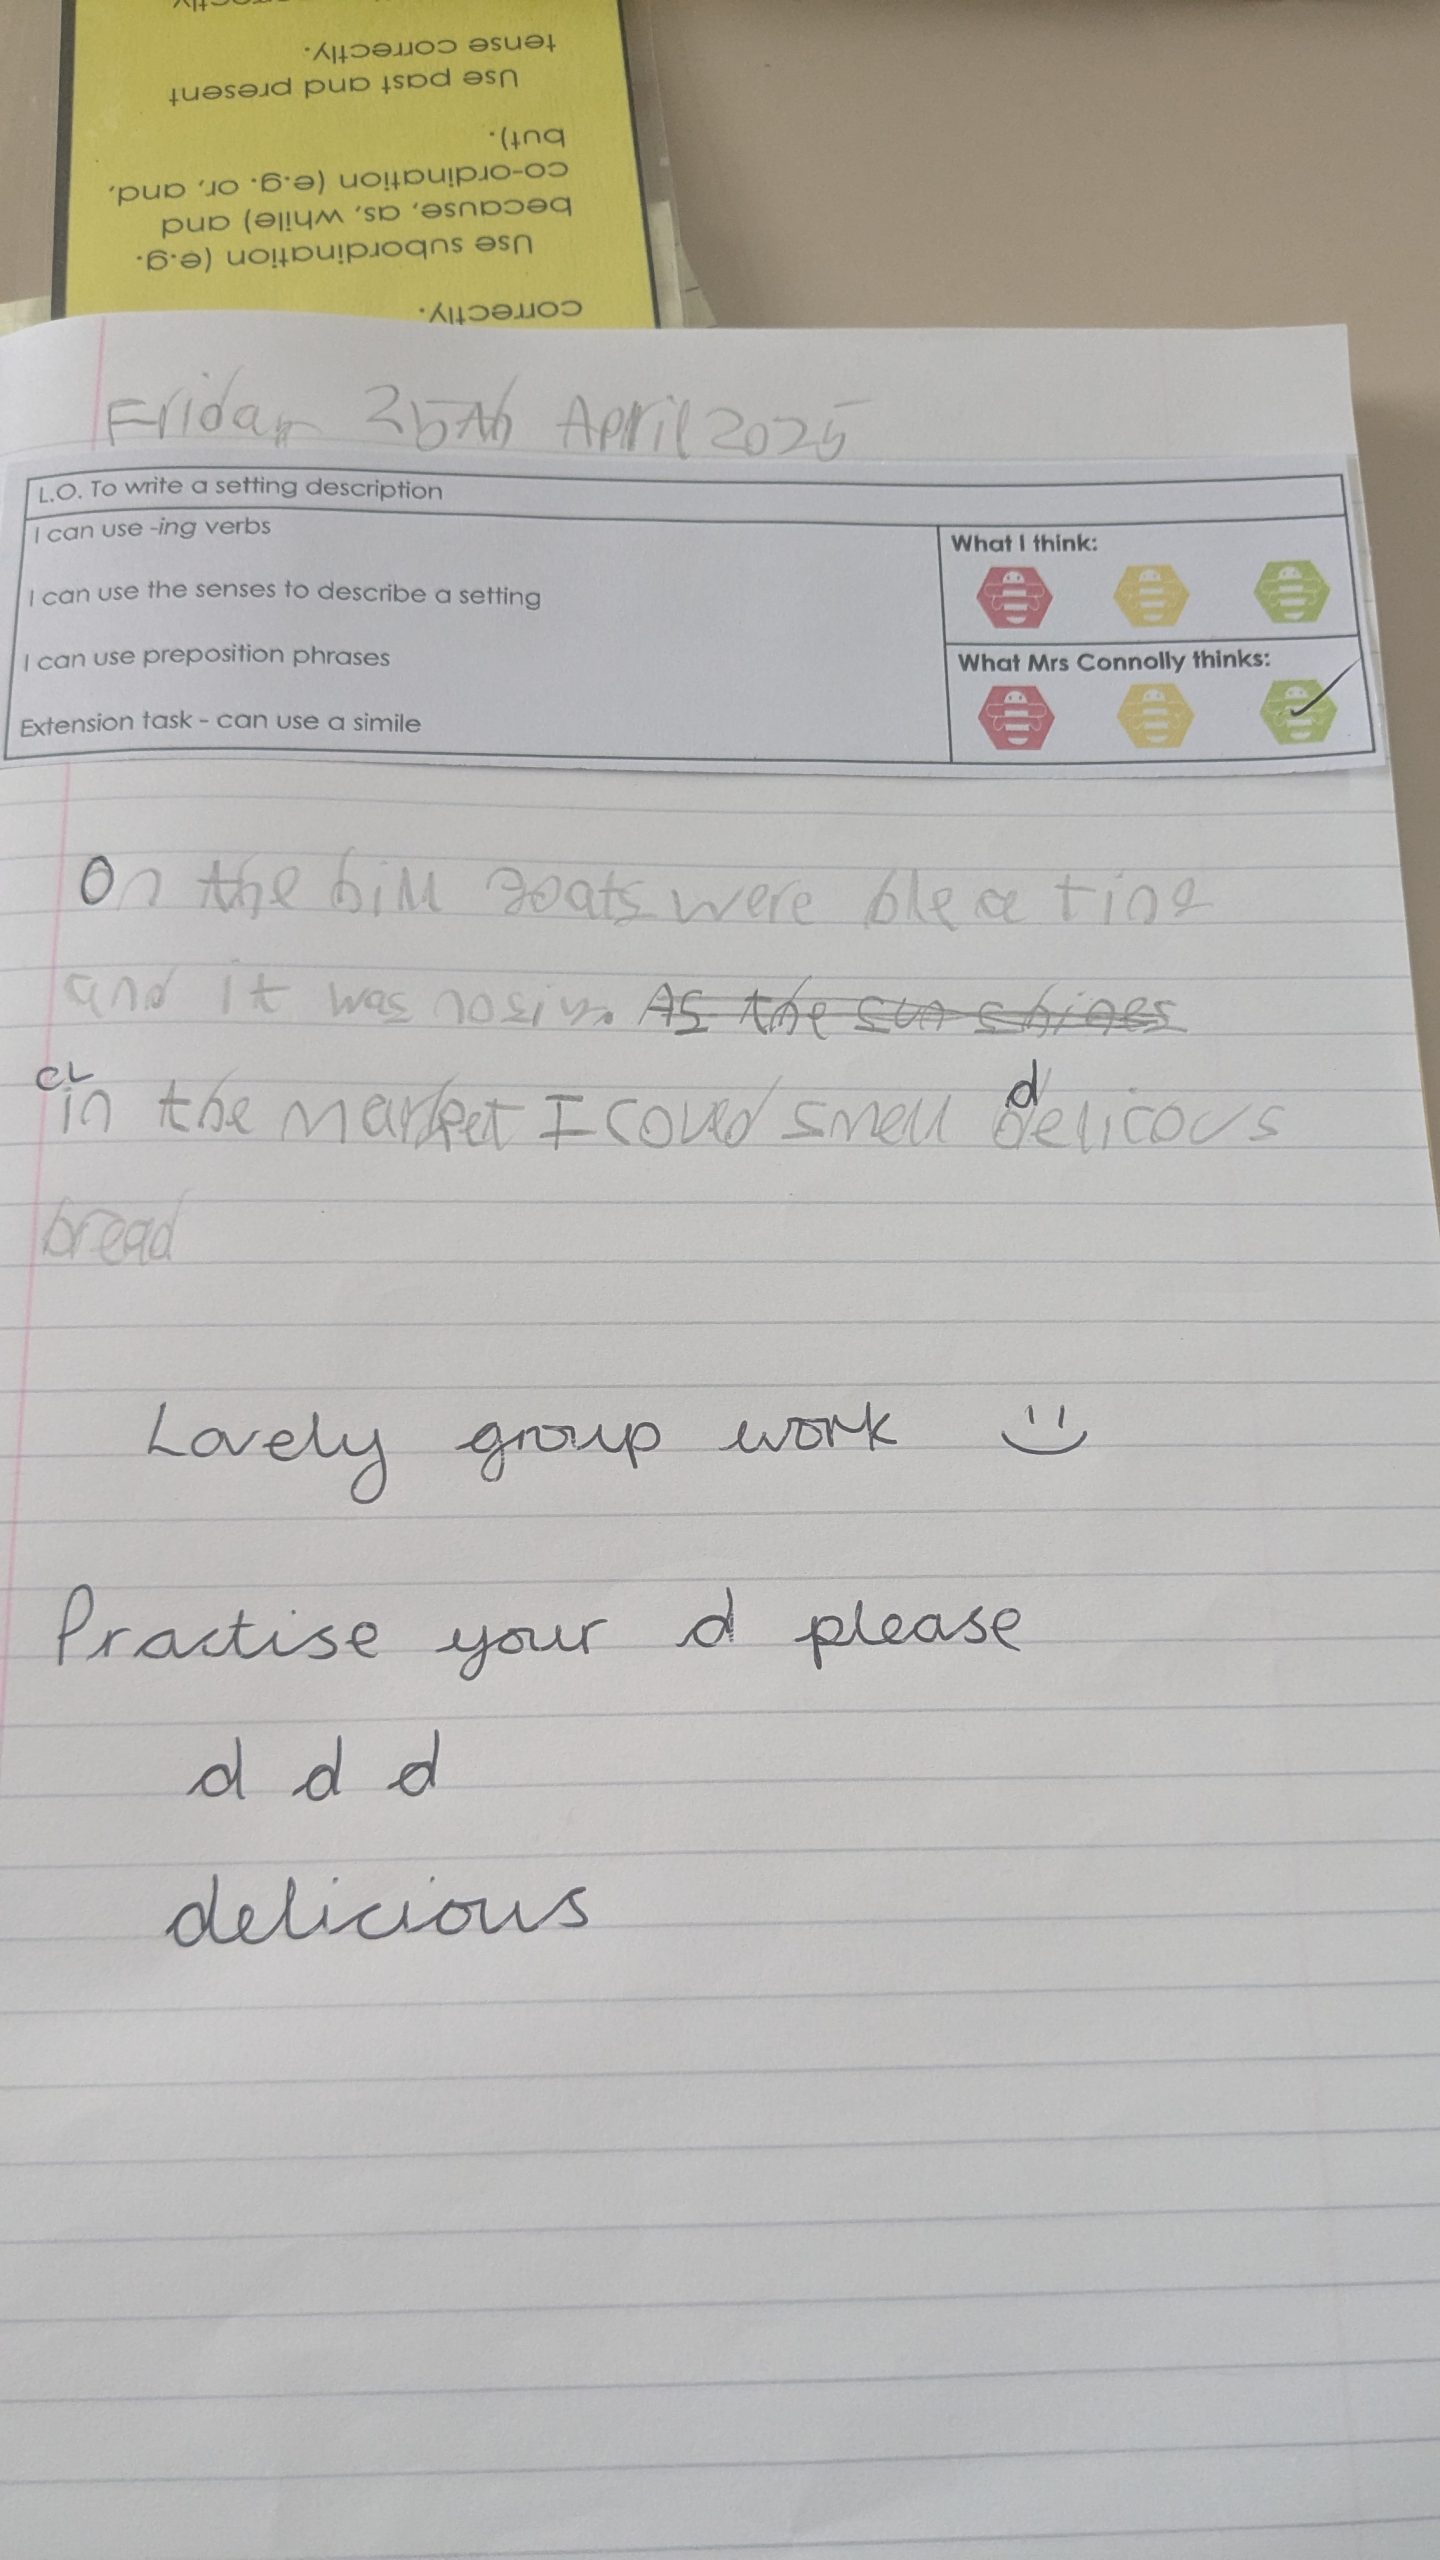 correctly.
Use subordination (e.g.
because, as, while) and
co-ordination (e.g. or, and,
but).
Use past and present
tense correctly.
Friday 25th April 2025
L.O. To write a setting description
I can use -ing verbs
I can use the senses to describe a setting
I can use preposition phrases
Extension task - can use a simile
What I think:
What Mrs Connolly thinks:
On the hill goats were bleating
and it was nosiy. As the sun shines
CL
in the market I coued smell delicous
d
bread
Lovely group work
Practise your d please
d d d
delicious